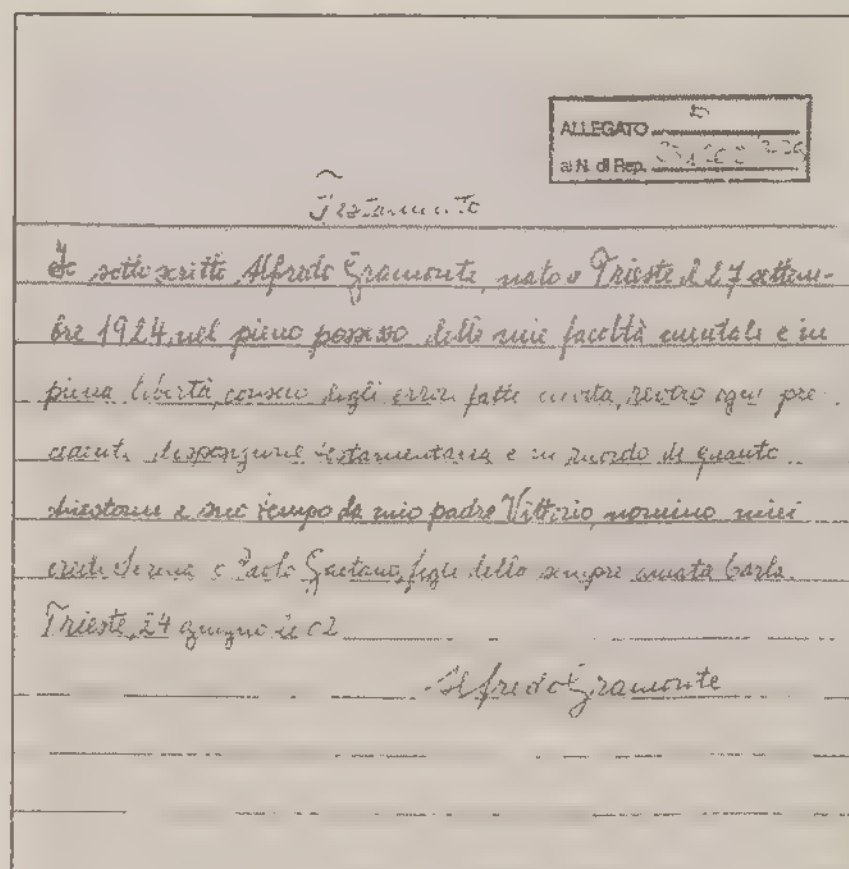 ALLEGATO D
al N. di Rep.
Testamento
Io sottoscritto Alfredo Gramonte, nato a Trieste il 27 settem-
bre 1924, nel pieno possesso delle mie facoltà mentali e in
piena libertà, conscio degli errori fatti in vita, revoco ogni pre-
cedente disposizione testamentaria e in ricordo di quanto
chiestomi a suo tempo da mio padre Vittorio, nomino miei
eredi Serena e Paolo Gaetano, figli della sempre amata Carla.
Trieste, 24 giugno
Alfredo Gramonte